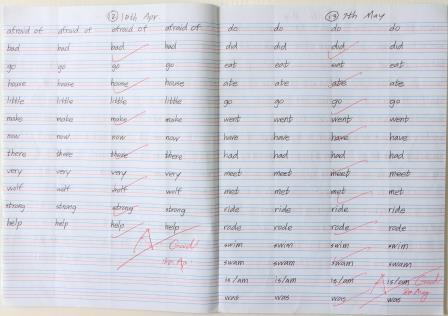 ⑫ 10th Apr.
afraid of afraid of afraid of afraid of
bad bad bad bad
go go go go
house house house house
little little little little
make make make make
now now now now
there there there there
very very very very
wolf wolf wolf wolf
strong strong strong strong
help help help help
A Good!
⑬ 7th May
do do do do
did did did did
eat eat eat eat
ate ate ate ate
go go go go
went went went went
have have have have
had had had had
meet meet meet meet
met met met met
ride ride ride ride
rode rode rode rode
swim swim swim swim
swam swam swam swam
is/am is/am is/am is/am Good!
was was was was